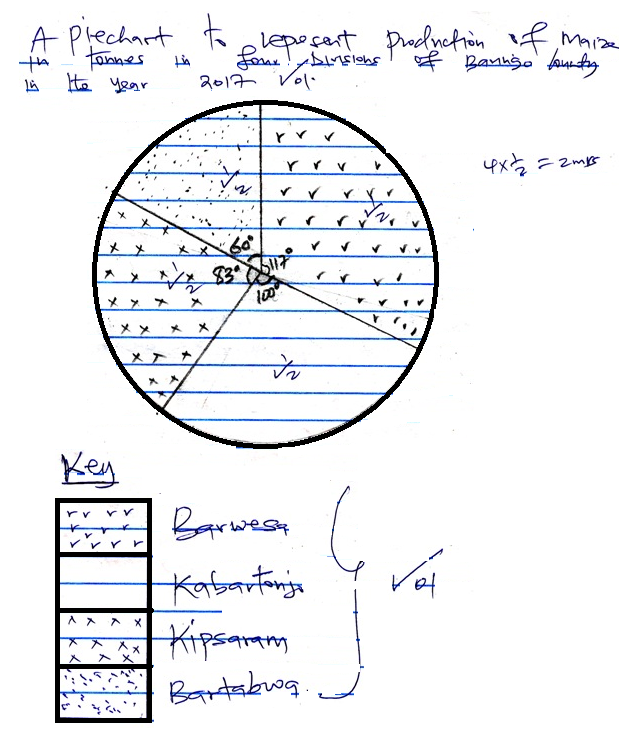 A Piechart to represent Production of Maize
In Tonnes in four Divisions of Baringo County
in the year 2017 √01.
4x½ = 2mks
√½
√½
60°
117°
83°
100°
√½
√½
Key
Barwesa
Kabartonjo
Kipsaram
Bartabwa.
√01